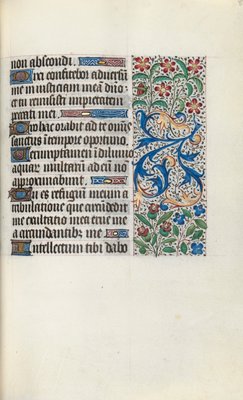 non abscondi.
Dixi confitebor adversum
me iniusticiam meã dño:
et tu remisisti impietatem
peccati mei.
Pro hac orabit ad te omĩs
sanctus i tempore oportuno.
Verumptamen ĩ diluvio
aquar multarũ ad eũ nõ
approximabunt.
Tu es refugiũ meum i
tribulatione que circũdedit
me exultatio mea erue me
a circundantibꝰ me
Intellectum tibi dabo